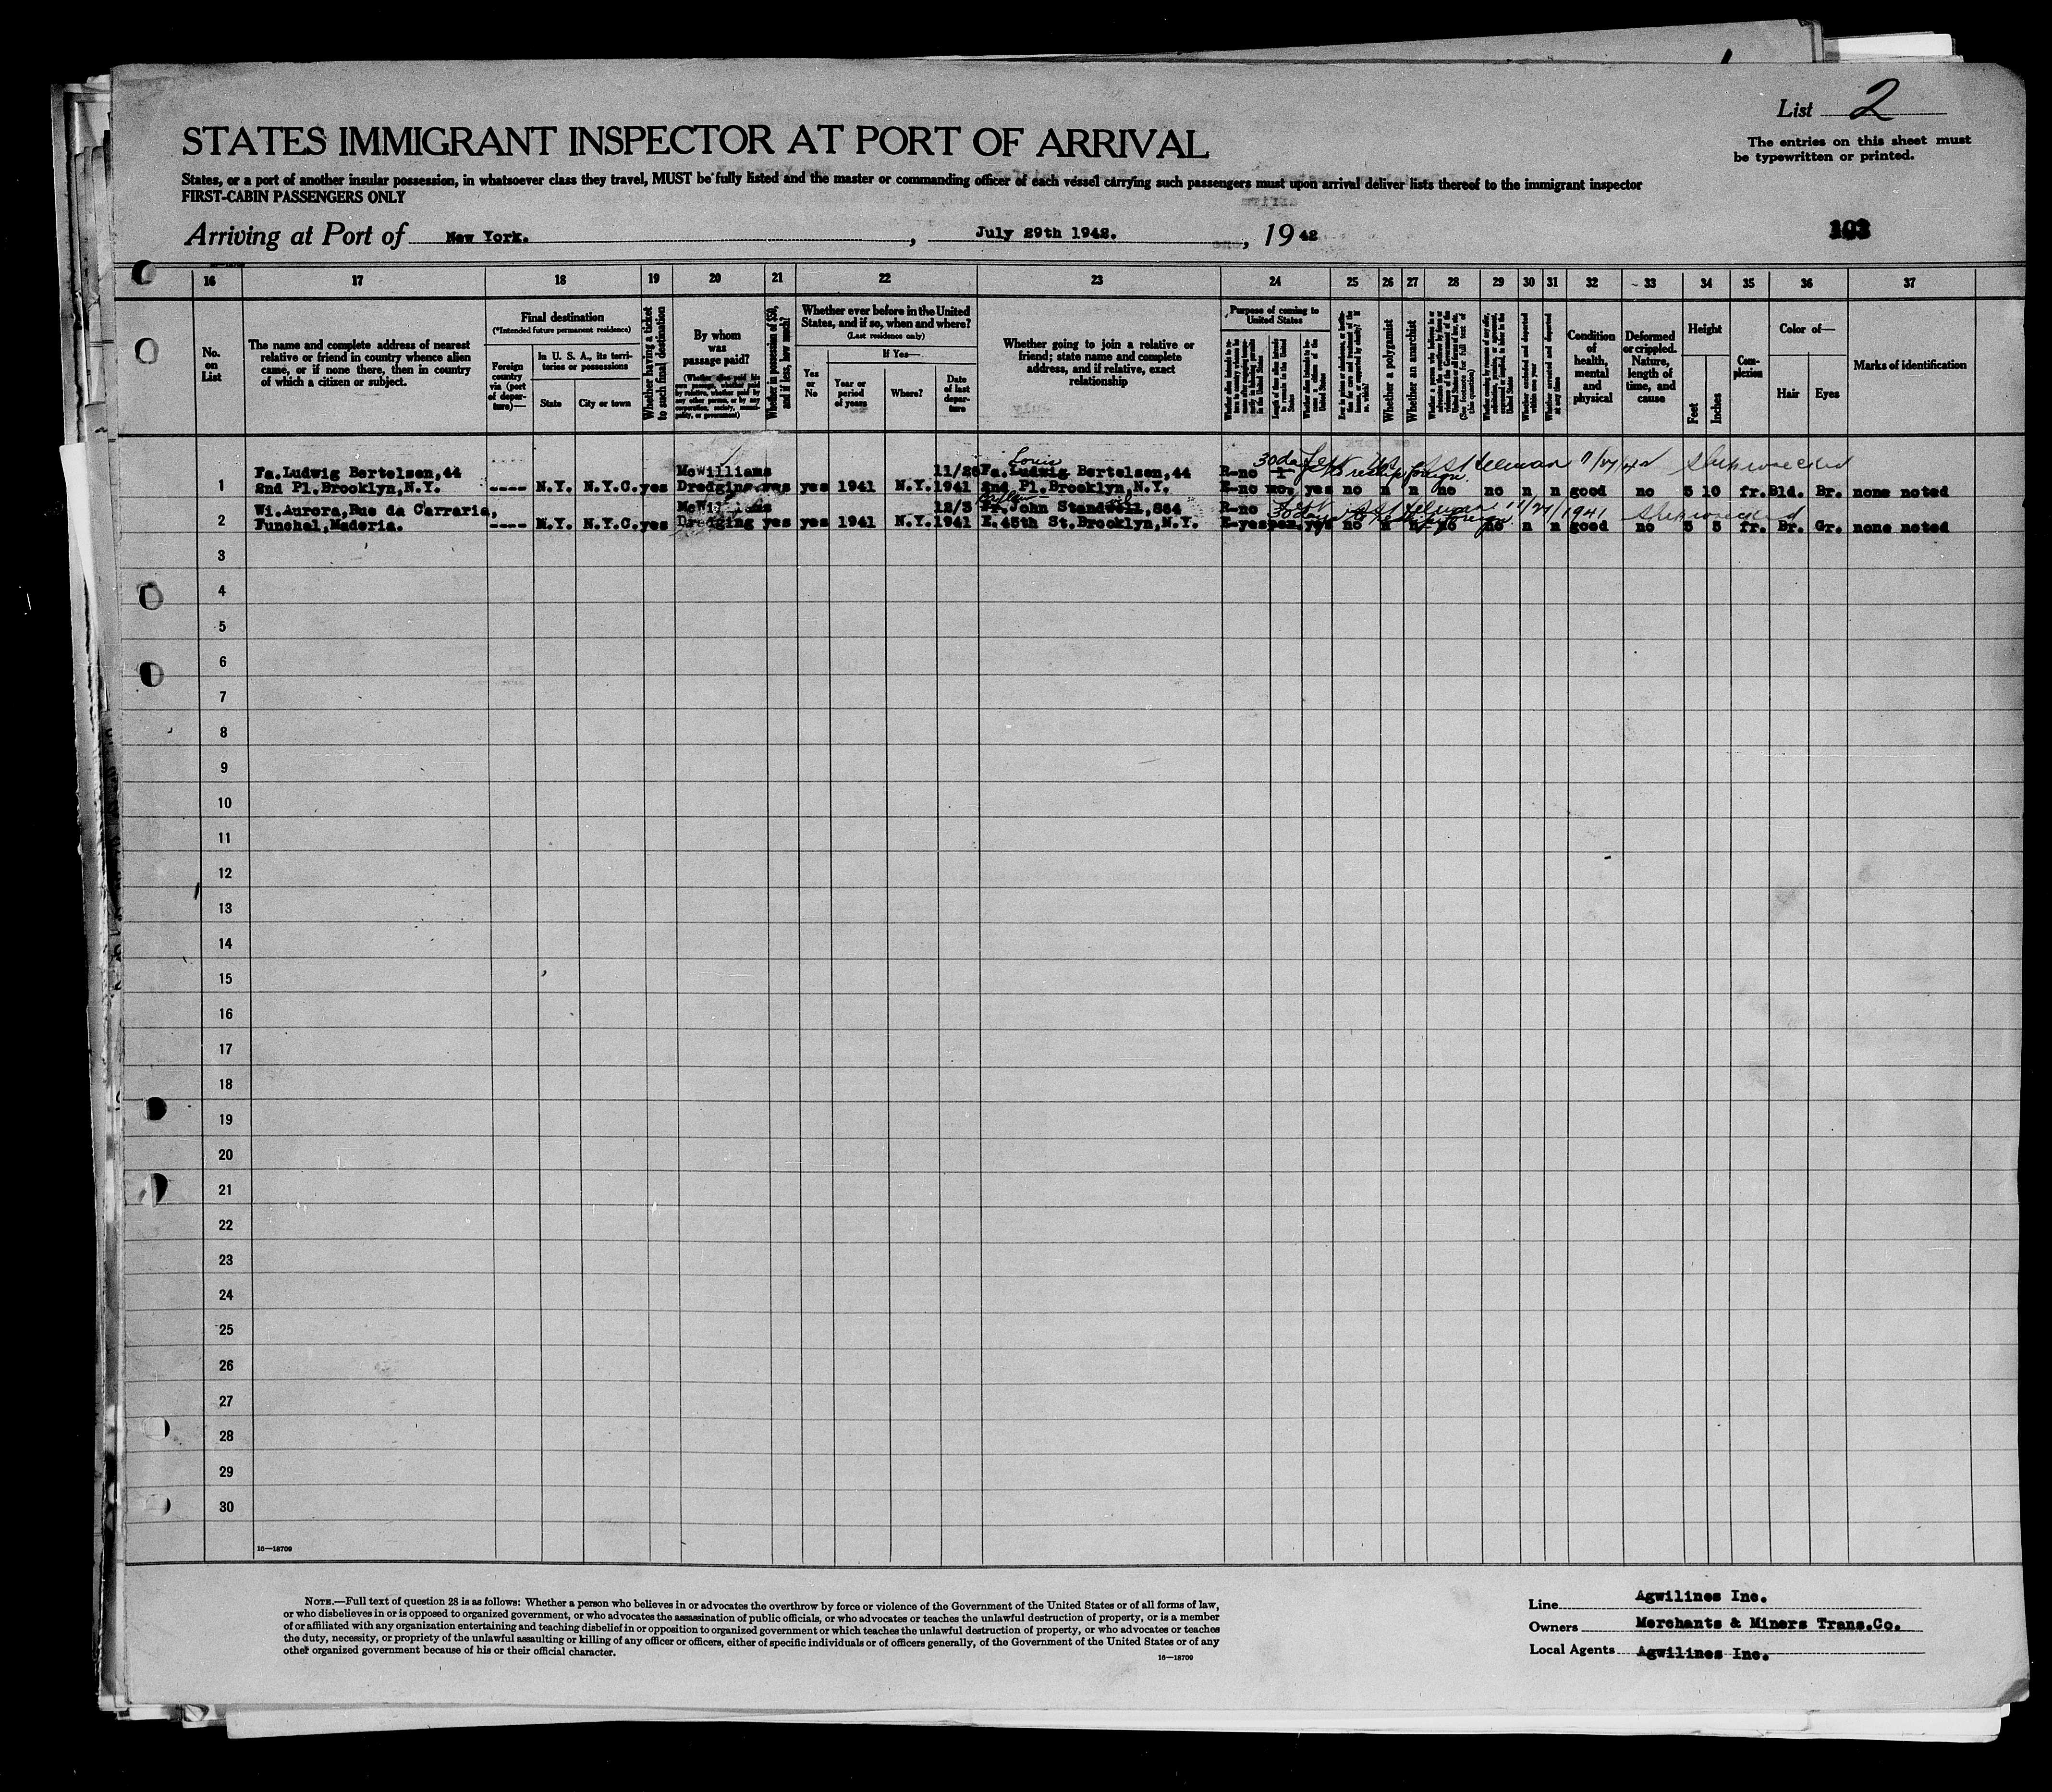 List 2
The entries on this sheet must
be typewritten or printed.
STATES IMMIGRANT INSPECTOR AT PORT OF ARRIVAL
States, or a port of another insular possession, in whatsoever class they travel, MUST be fully listed and the master or commanding officer of each vessel carrying such passengers must upon arrival deliver lists thereof to the immigrant inspector
FIRST-CABIN PASSENGERS ONLY
Arriving at Port of New York. , July 29th 1942. , 1942
103
16 17 18 19 20 21 22 23 24 25 26 27 28 29 30 31 32 33 34 35 36 37
No. on List
The name and complete address of nearest relative or friend in country whence alien came, or if none there, then in country of which a citizen or subject.
Final destination
(*Intended future permanent residence)
Foreign country via (port of departure)—
In U. S. A., its territories or possessions
State
City or town
Whether having a ticket to such final destination
By whom was passage paid?
Whether in possession of $50, and if less, how much?
Whether ever before in the United States, and if so, when and where?
(Last residence only)
Yes or No
If Yes—
Year or period of years
Where?
Date of last departure
Whether going to join a relative or friend; state name and complete address, and if relative, exact relationship
Purpose of coming to United States
Whether a polygamist
Whether an anarchist
Condition of health, mental and physical
Deformed or crippled. Nature, length of time, and cause
Height
Feet
Inches
Complexion
Color of—
Hair
Eyes
Marks of identification
Louis 30 da 7/27/42 Shipwrecked
Fa.Ludwig Bertelsen,44 McWilliams 11/26 Fa.Ludwig Bertelsen,44 R-no
1 2nd Pl.Brooklyn,N.Y. ---- N.Y. N.Y.C. yes Dredging yes yes 1941 N.Y. 1941 2nd Pl.Brooklyn,N.Y. E-no mo. yes no n n no no n n good no 5 10 fr. Bld. Br. none noted
Wi.Aurora,Rue da Carraria, McWilliams 12/3 Fr.John Standwell,864 R-no 30 da 1941 Shipwrecked
2 Funchal,Maderia. ---- N.Y. N.Y.C. yes Dredging yes yes 1941 N.Y. 1941 E.45th St.Brooklyn,N.Y. E-yes no n n no no n n good no 5 5 fr. Br. Gr. none noted
3
4
5
6
7
8
9
10
11
12
13
14
15
16
17
18
19
20
21
22
23
24
25
26
27
28
29
30
16—18709
NOTE.—Full text of question 28 is as follows: Whether a person who believes in or advocates the overthrow by force or violence of the Government of the United States or of all forms of law,
or who disbelieves in or is opposed to organized government, or who advocates the assassination of public officials, or who advocates or teaches the unlawful destruction of property, or is a member
of or affiliated with any organization entertaining and teaching disbelief in or opposition to organized government or which teaches the unlawful destruction of property, or who advocates or teaches
the duty, necessity, or propriety of the unlawful assaulting or killing of any officer or officers, either of specific individuals or of officers generally, of the Government of the United States or of any
other organized government because of his or their official character.
16—18709
Line Agwilines Inc.
Owners Merchants & Miners Trans.Co.
Local Agents Agwilines Inc.